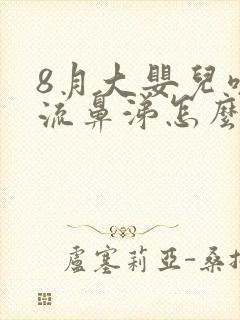 8月大嬰兒
流鼻涕怎麼
盧塞莉亞-桑